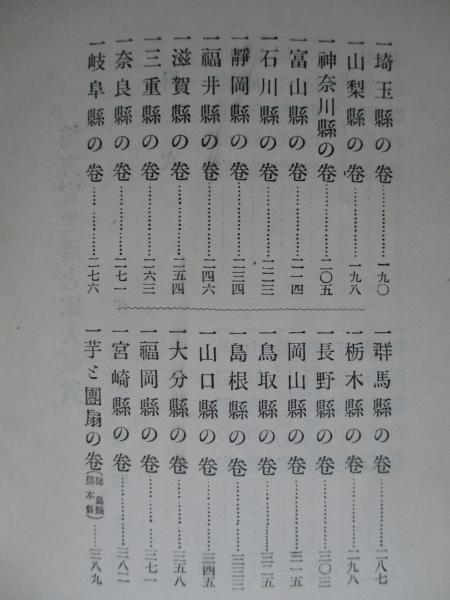 一埼玉縣の卷…………一九〇
一山梨縣の卷…………一九八
一神奈川縣の卷…………二〇五
一富山縣の卷…………二一四
一石川縣の卷…………二二三
一靜岡縣の卷…………二三四
一福井縣の卷…………二四六
一滋賀縣の卷…………二五四
一三重縣の卷…………二六三
一奈良縣の卷…………二七一
一岐阜縣の卷…………二七六
一群馬縣の卷…………二八七
一栃木縣の卷…………二九八
一長野縣の卷…………三〇三
一岡山縣の卷…………三一五
一鳥取縣の卷…………三二五
一島根縣の卷…………三三二
一山口縣の卷…………三四五
一大分縣の卷…………三五八
一福岡縣の卷…………三七一
一宮崎縣の卷…………三八二
一芋と團扇の卷(鹿兒島縣 熊本縣)……三八九